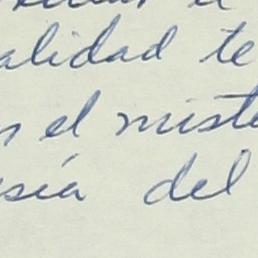 alidad te
n el miste
sía del